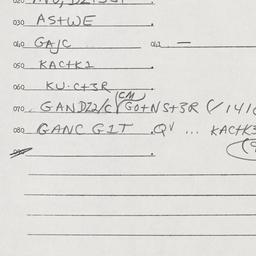 030 AS+WE .
040 GAJC 042 —
050 KAC+K1 .
060 KU·C+3R .
070 GANDZ2/C (CM GO+NS+3R (/141
080 GANC G1T . QV ... KAC+K3